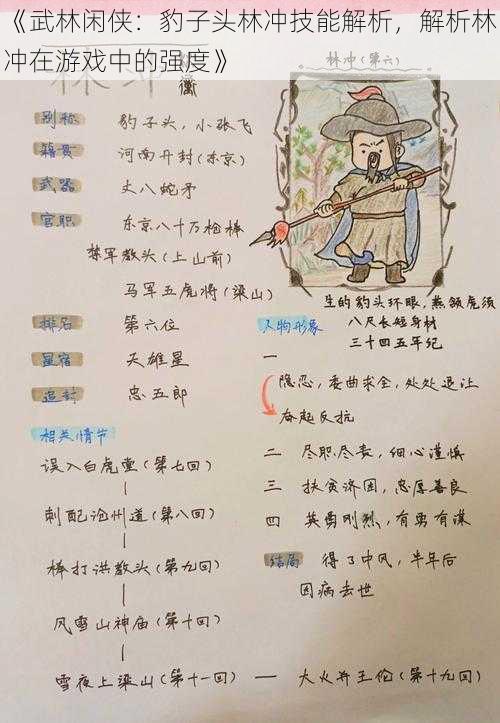 《武林闲侠：豹子头林冲技能解析，解析林
冲在游戏中的强度》
林冲
林冲(第六)
别称 豹子头，小张飞
籍贯 河南开封(东京)
武器 丈八蛇矛
官职 东京八十万枪棒
禁军教头(上山前)
马军五虎将(梁山)
排名 第六位
星宿 天雄星
追封 忠五郎
相关情节
误入白虎堂(第七回)
刺配沧州道(第八回)
棒打洪教头(第九回)
风雪山神庙(第十回)
雪夜上梁山(第十一回) — 大火并王伦(第十九回)
生的豹头环眼，燕颔虎须
八尺长短身材
三十四五年纪
人物形象
一
隐忍，委曲求全，处处退让
奋起反抗
二 尽职尽责，细心谨慎
三 扶贫济困，忠厚善良
四 英勇刚烈，有勇有谋
结局 得了中风，半年后
因病去世